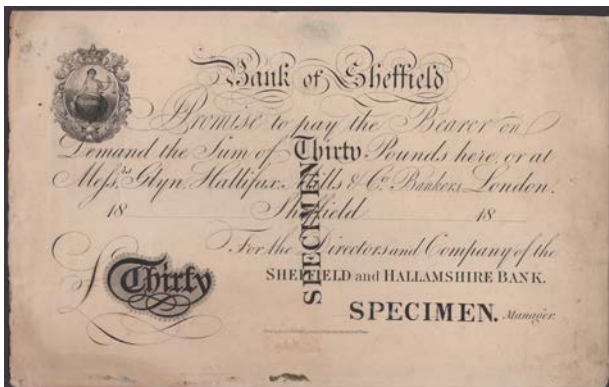 Bank of Sheffield
Promise to pay the Bearer on
Demand the Sum of Thirty Pounds here, or at
Mess.rs Glyn, Hallifax, Mills & Co. Bankers, London.
18 Sheffield 18
For the Directors and Company of the
SHEFFIELD and HALLAMSHIRE BANK.
£ Thirty
SPECIMEN. Manager.
SPECIMEN